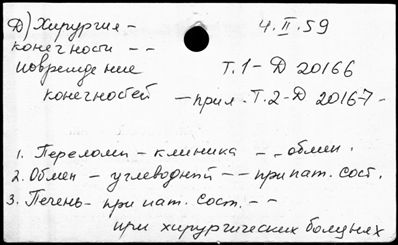 Д) Хирургия - 4.II.59
конечности - -
повреждение Т.1-Д 20166
конечностей - прил. Т.2-Д 20167-
1. Переломи - клиника - - обмен.
2. Обмен - углеводный - - при пат. сост.
3. Печень - при пат. сост. - -
при хирургических болезнях